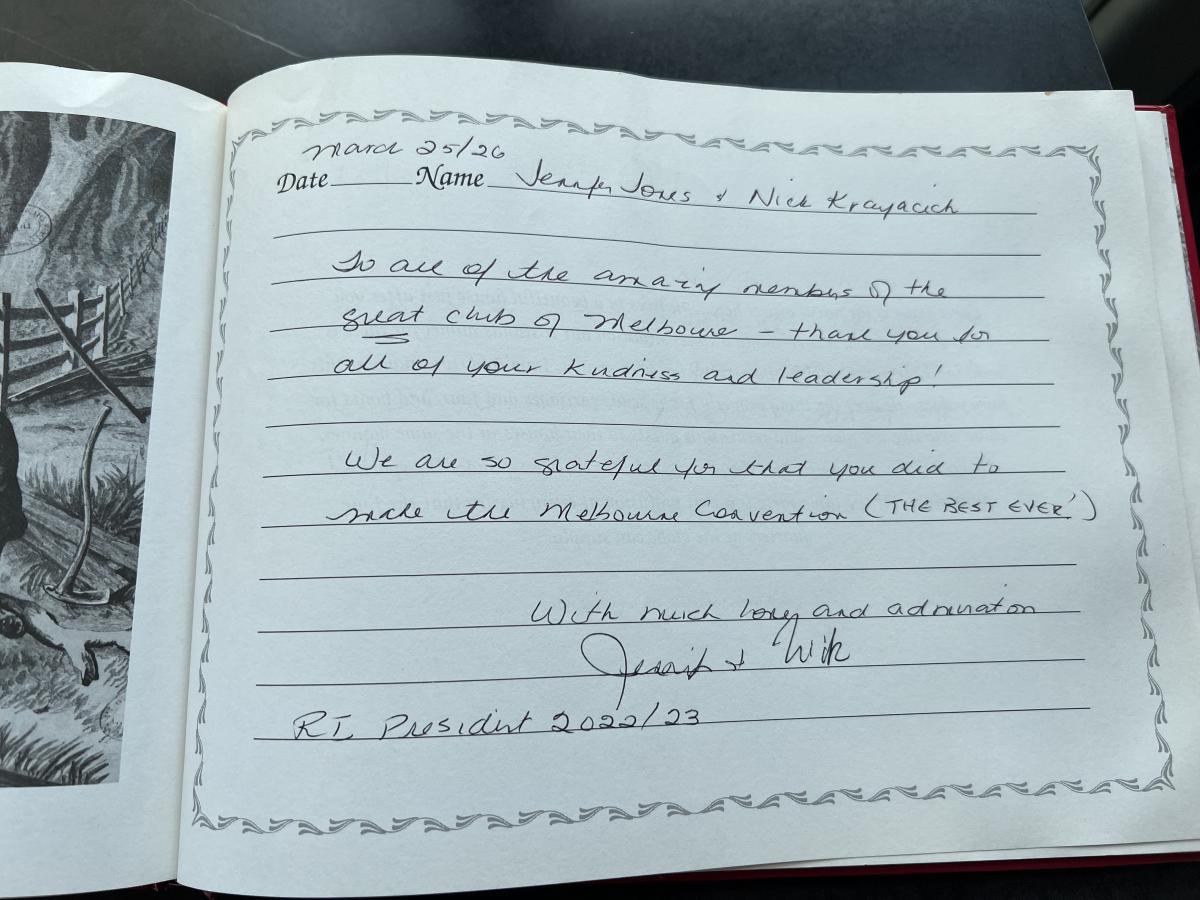 March 25/26
Date Name Jennifer Jones & Nick Krayacich
To all of the amazing members of the
great club of Melbourne – thank you for
all of your kindness and leadership!
We are so grateful for that you did to
make the Melbourne Convention (THE BEST EVER!)
With much love and admiration
Jennifer & Nick
RI President 2022/23